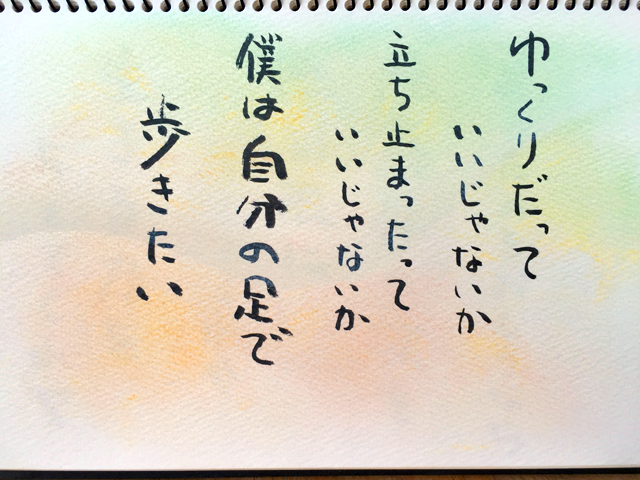 ゆっくりだって
いいじゃないか
立ち止まったって
いいじゃないか
僕は自分の足で
歩きたい